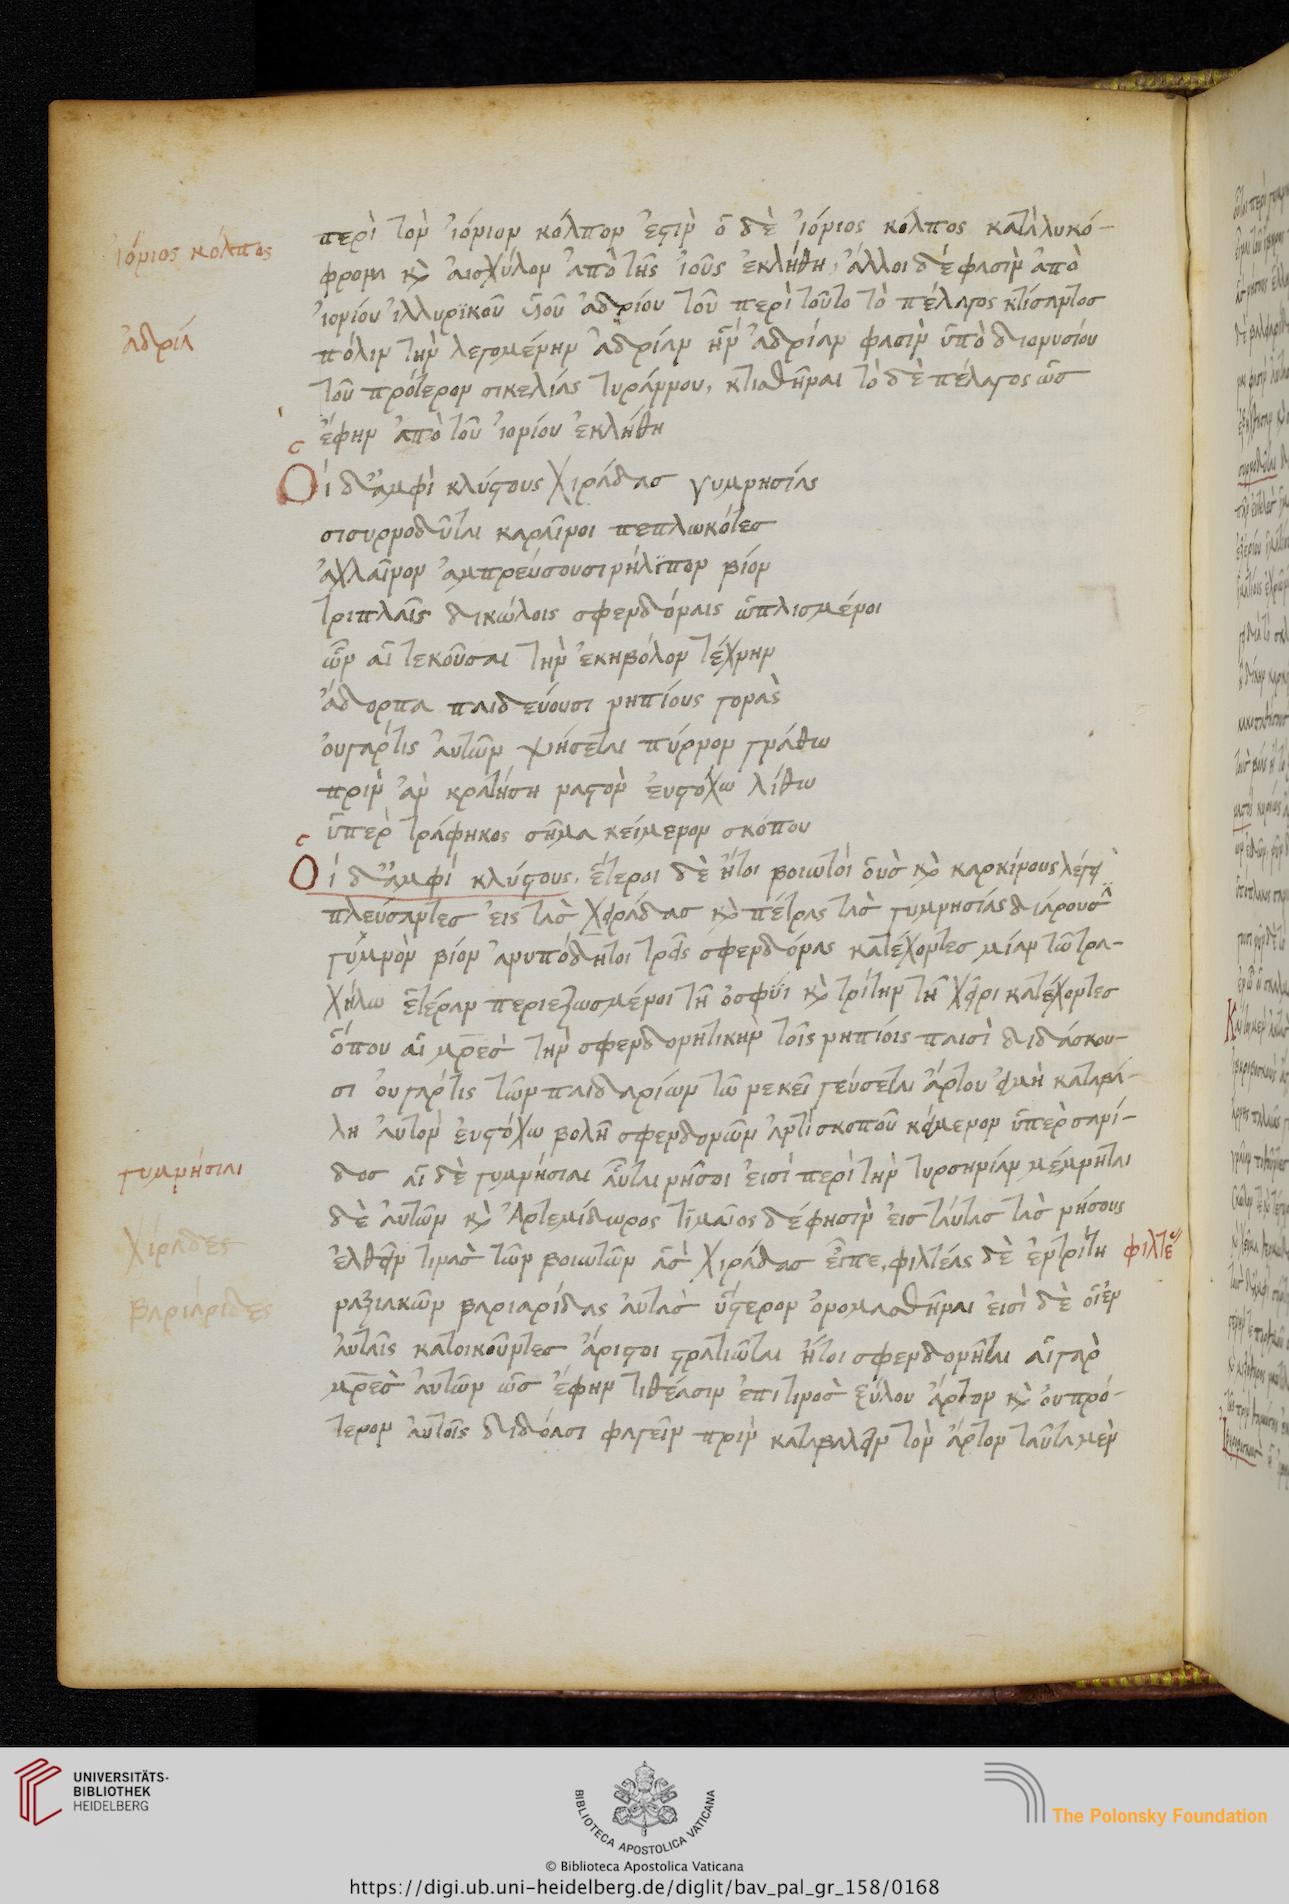 ἰόνιος κόλπος
ἀδρία
περὶ τὸν ἰόνιον κόλπον ἐστὶν ὁ δὲ ἰόνιος κόλπος κατὰ λυκό-
φρονα κὶ αἰσχύλον ἀπὸ τῆς ἰοῦς ἐκλήθη, ἄλλοι δέ φασιν ἀπὸ
ἰονίου ἰλλυρϊκοῦ υἱοῦ ἀδρίου τοῦ περὶ τοῦτο τὸ πέλαγος κτίσαντος
πόλιν τὴν λεγομένην ἀδρίαν ἣν ἀδρίαν φασὶν ὑπὸ διονυσίου
τοῦ πρότερον σικελίας τυράννου, κτισθῆναι τὸ δὲ πέλαγος ὡς
ἔφην ἀπὸ τοῦ ἰονίου ἐκλήθη
Οἱ δ' ἀμφὶ κλύστους χιράδας γυμνησίας
σισυρνοδῦται καρκῖνοι πεπλωκότες
ἀχλαῖνον ἀμπρεύσουσι νήλϊπον βίον
τριπλαῖς δικώλοις σφενδόναις ὡπλισμένοι
ὧν αἱ τεκοῦσαι τὴν ἐκηβόλον τέχνην
ἄδορπα παιδεύουσι νηπίους γονάς
οὐ γάρ τις αὐτῶν ψήσεται πύρνον γνάθω
πρὶν ἂν κρατήση ναστὸν εὐστόχω λίθω
ὑπὲρ τράφηκος σῆμα κείμενον σκόπου
Οἱ δ' ἀμφὶ κλύστους, ἕτεροι δὲ ἤτοι βοιωτοὶ οὓς κὶ καρκίνους λέγει
πλεύσαντες εἰς τὰς χειράδας κὶ πέτρας τὰς γυμνησίας διάξουσι
γυμνὸν βίον ἀνυπόδητοι τρεῖς σφενδόνας κατέχοντες μίαν τῶ τρα-
χήλω ἑτέραν περιεζωσμένοι τῆ ὀσφύι κὶ τρίτην τῆ χειρὶ κατέχοντες
ὅπου αἱ μρ̅ες τὴν σφενδονητικὴν τοῖς νηπίοις παισὶ διδάσκου-
σι οὐ γάρ τις τῶν παιδαρίων τῶν ἐκεῖ γεύσεται ἄρτου εἰ μὴ καταβά-
λη αὐτὸν εὐστόχω βολῆ σφενδονῶν ἀντὶ σκοποῦ κείμενον ὑπὲρ σανί-
γυμνήσιαι
δος αἱ δὲ γυμνήσιαι αὗται νῆσοι εἰσὶ περὶ τὴν τυρσηνίαν μέμνηται
δὲ αὐτῶν κὶ Ἀρτεμίδωρος τίμαιος δέ φησιν εἰς ταύτας τὰς νήσους
χιράδες
ἐλθεῖν τινὰς τῶν βοιωτῶν ἃς χιράδας εἶπε, φιλτέας δὲ ἐν τρίτη
φιλτέας
βαριαρίδες
ναξιακῶν βαριαρίδας αὐτὰς ὕστερον ὀνομασθῆναι εἰσὶ δὲ οἱ ἐν
αὐταῖς κατοικοῦντες ἄριστοι στρατιῶται ἤτοι σφενδονῆται αἱ γὰρ
μρ̅ες αὐτῶν ὡς ἔφην τιθέασιν ἐπί τινος ξύλου ἄρτον κὶ οὐ πρό-
τερον αὐτοῖς διδόασι φαγεῖν πρὶν καταβαλεῖν τὸν ἄρτον ταῦτα μὲν
UNIVERSITÄTS-
BIBLIOTHEK
HEIDELBERG
BIBLIOTECA APOSTOLICA VATICANA
The Polonsky Foundation
© Biblioteca Apostolica Vaticana
https://digi.ub.uni-heidelberg.de/diglit/bav_pal_gr_158/0168